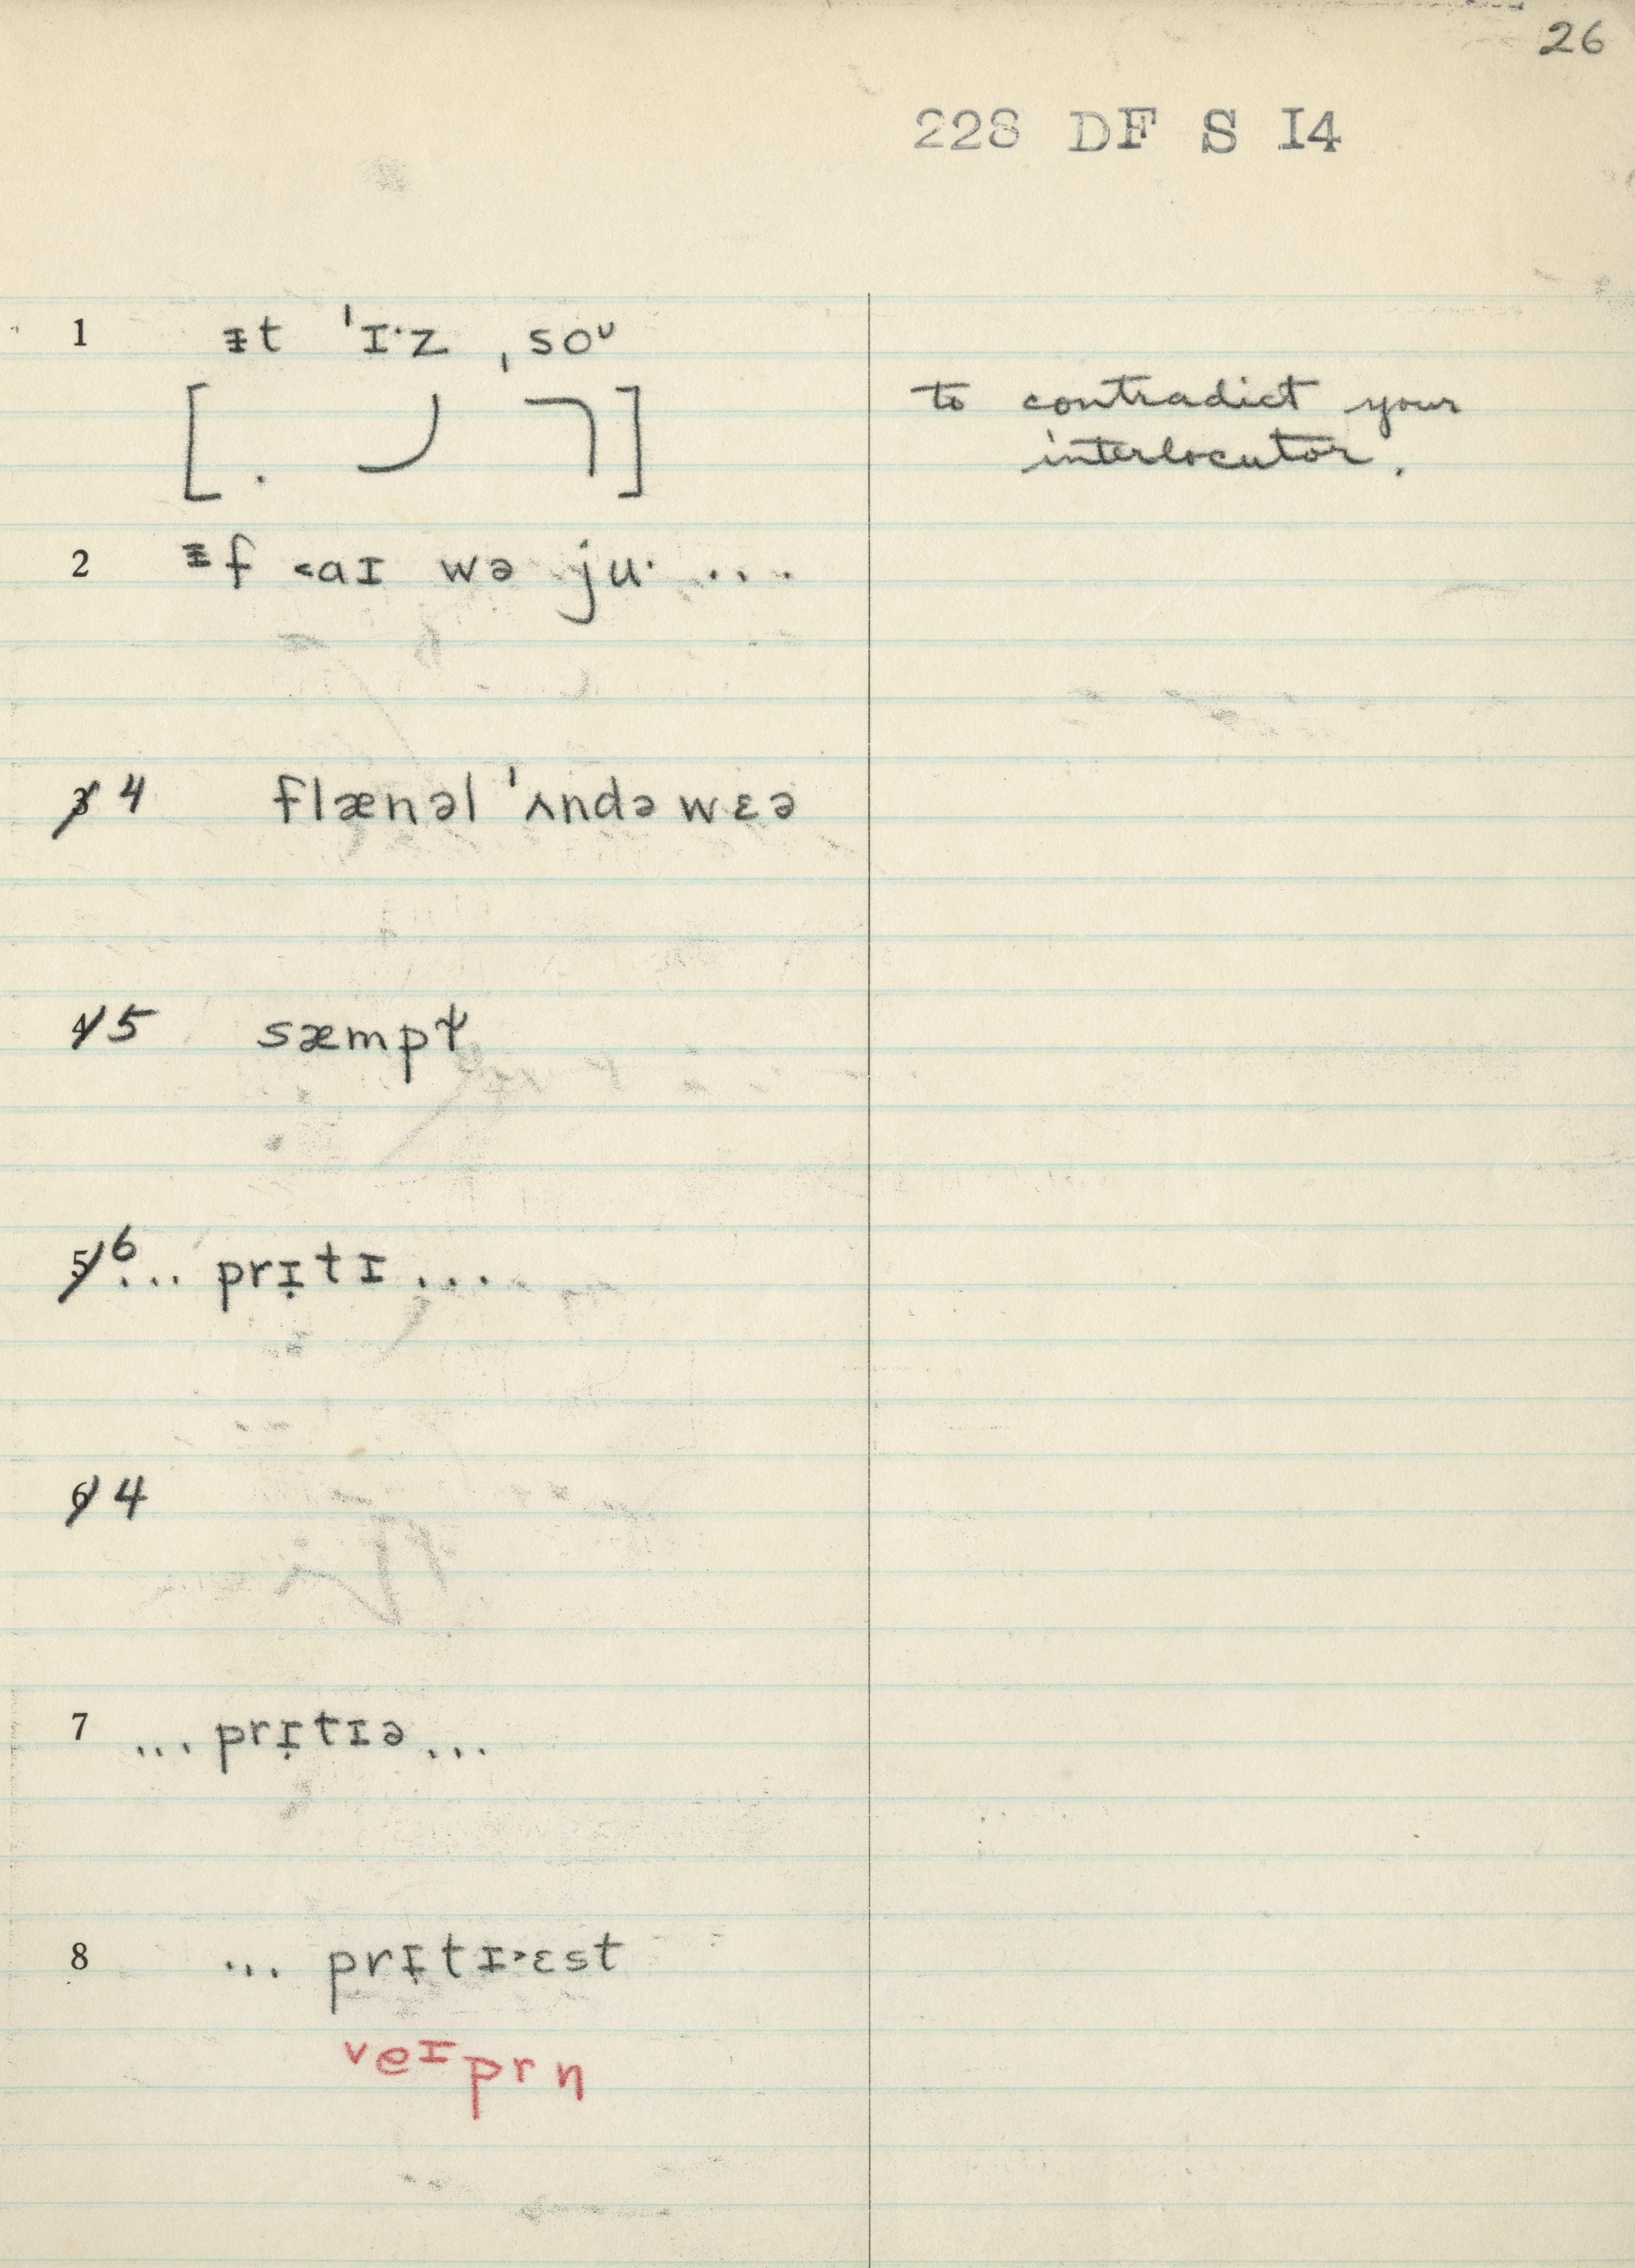 26
228 DF S I4
1 ᵻt ˈɪ·z ˌsoᶷ
[ . ]
to contradict your
interlocutor.
2 ᵻf <aɪ wə ju· ...
3 4 flænəl ˈʌndəwɛə
4 5 sæmpɫ
5 6 ... prɪ̣tɪ ...
6 4
7 ... prɪ̣tɪə ...
8 ... prɪ̣tɪ>ɛst
veɪprn